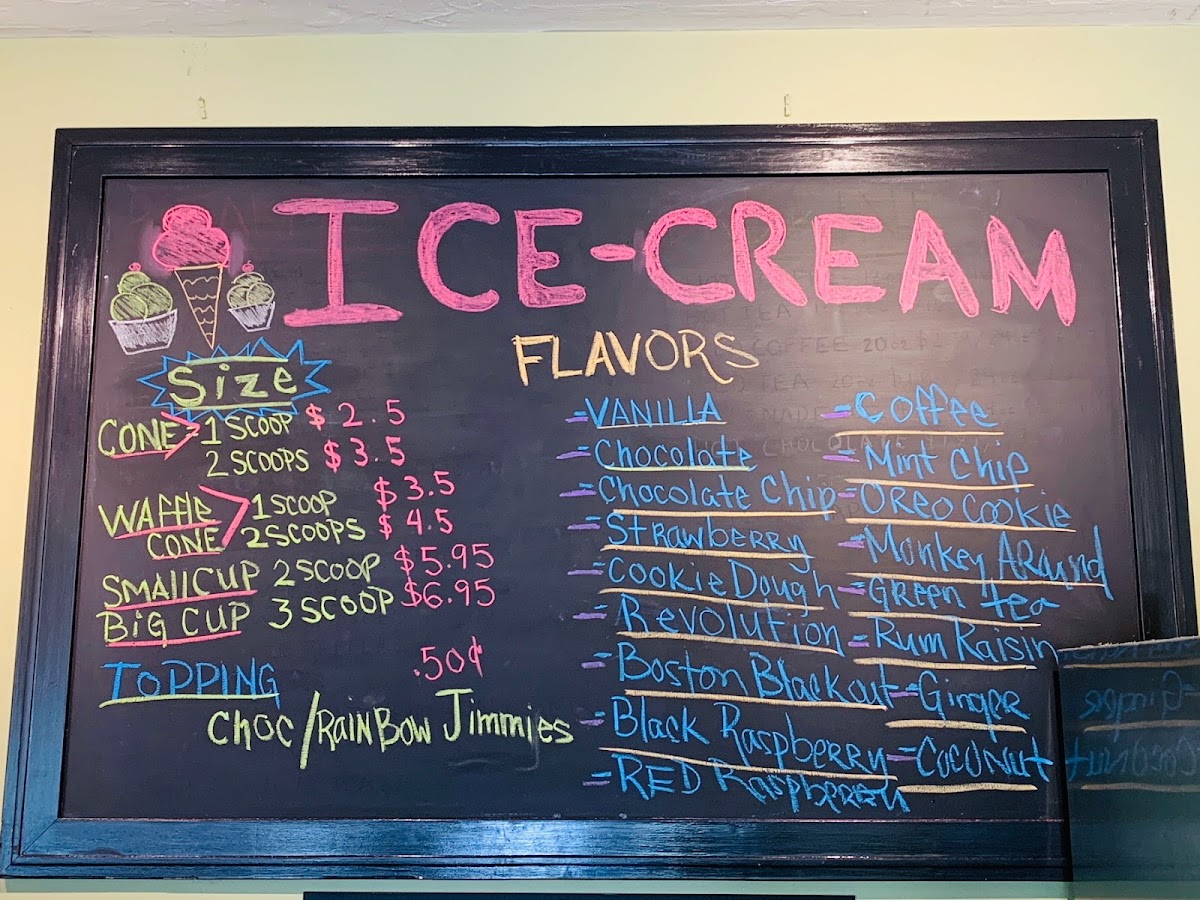 ICE-CREAM
FLAVORS
Size
CONE > 1 SCOOP $2.5
2 SCOOPS $3.5
WAFFLE CONE > 1 SCOOP $3.5
2 SCOOPS $4.5
SMALL CUP 2 SCOOP $5.95
BIG CUP 3 SCOOP $6.95
TOPPING .50¢
CHOC/RAINBOW Jimmies
- VANILLA
- Chocolate
- Chocolate Chip
- Strawberry
- Cookie Dough
- Revolution
- Boston Blackout
- Black Raspberry
- RED Raspberry
- Coffee
- Mint Chip
- OREO COOKIE
- Monkey AROUND
- GREEN tea
- Rum Raisin
- Ginger
- COCONUT